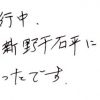 行中.
新野千石平に
ったです.